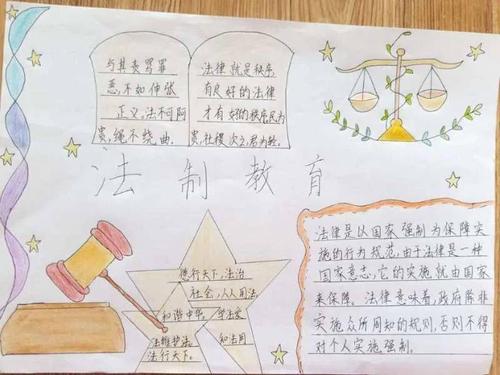 与其责骂罪
恶,不如伸张
正义。法不阿
贵,绳不挠曲.
法律就是秩序
有良好的法律
才有好的秩序民为
贵,社稷次之,君为轻.
法制教育
德行天下,法治
社会,人人用法,
和谐中华,
学法崇
法维护法,
和法同
法行天下。
法律是以国家强制为保障实
施的行为规范,由于法律是一种
国家意志,它的实施就由国家
来保障。法律意味着,政府除非
实施众所周知的规则,否则不得
对个人实施强制。